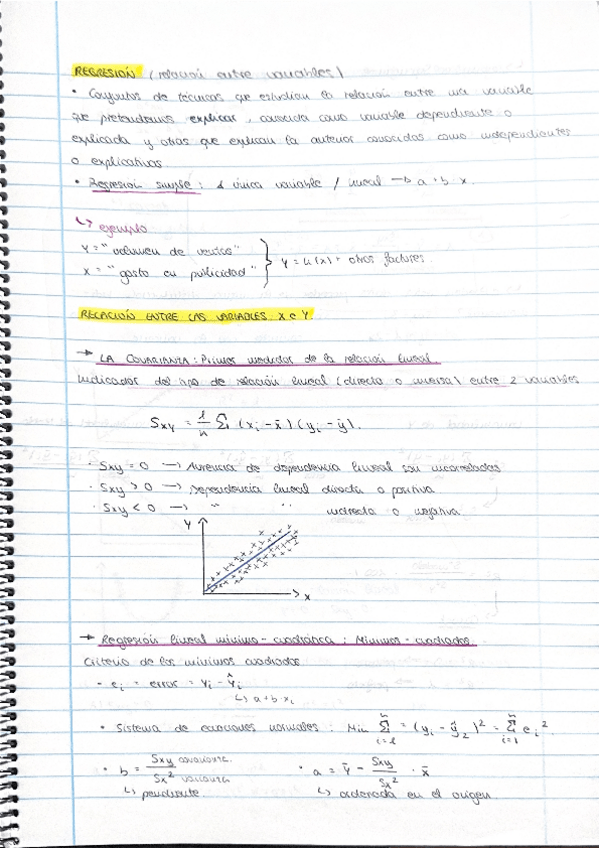 REGRESIÓN (relación entre variables)
• Conjuntos de técnicas que estudian la relación entre una variable
que pretendemos explicar, conocida como variable dependiente o
explicada y otras que explican la anterior conocidas como independientes
o explicativas
• Regresión simple: 1 única variable / lineal → a + b · x.
↳ ejemplo
Y = "volumen de ventas"
X = "gasto en publicidad" } Y = u(x) + otros factores.
RELACIÓN ENTRE LAS VARIABLES X e Y.
→ LA COVARIANZA: Primer medidor de la relación lineal.
Indicador del tipo de relación lineal (directa o inversa) entre 2 variables
Sxy = 1/n Σ (xi - x̄)(yi - ȳ).
· Sxy = 0 → Ausencia de dependencia lineal son incorreladas
· Sxy > 0 → Dependencia lineal directa o positiva
· Sxy < 0 → " " indirecta o negativa.
Y
X
→ Regresión lineal mínimo-cuadrática: Mínimos-cuadrados.
Criterio de los mínimos cuadrados
• ei = error = Yi - Ŷi
↳ a + b · xi
• Sistema de ecuaciones normales: Min Σ(i=1, n) = (yi - ŷ2)² = Σ(i=1, n) ei².
• b = Sxy covarianza. / Sx² varianza • a = Ȳ - Sxy/Sx² · x̄
↳ pendiente ↳ ordenada en el origen.